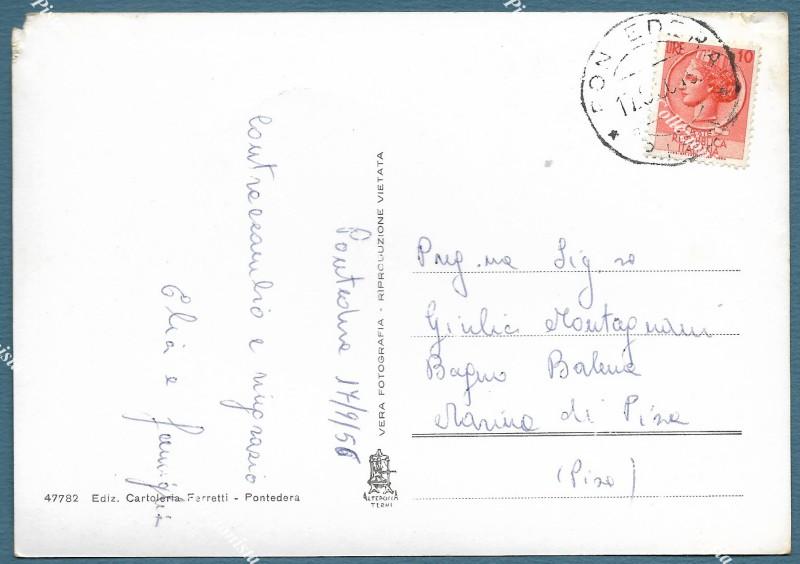 PONTEDERA
LIRE 10
REPUBBLICA
ITALIANA
Pontedera 17/9/56
Contraccambio e ringrazio
Elia e famiglia
VERA FOTOGRAFIA - RIPRODUZIONE VIETATA
Preg.ma Sig.ra
Giulia Montagnani
Bagno Balena
Marina di Pisa
(Pisa)
47782 Ediz. Cartoleria Ferretti - Pontedera
ALTEROCCA
TERNI